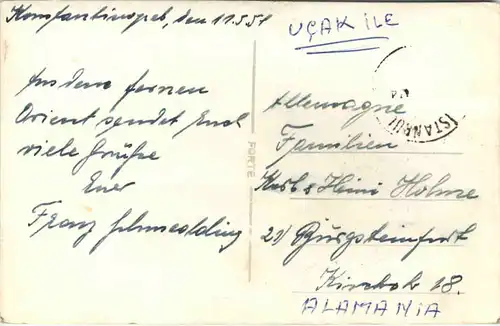 Konstantinopel, den 11.5.51
UÇAK ILE
Aus dem fernen
Orient sendet Euch
viele Grüße
Euer
Franz
PORTE
ISTANBUL
Allemagne
Familien
Karl & Heini Holme
21) Burgsteinfurt
18.
ALAMANIA